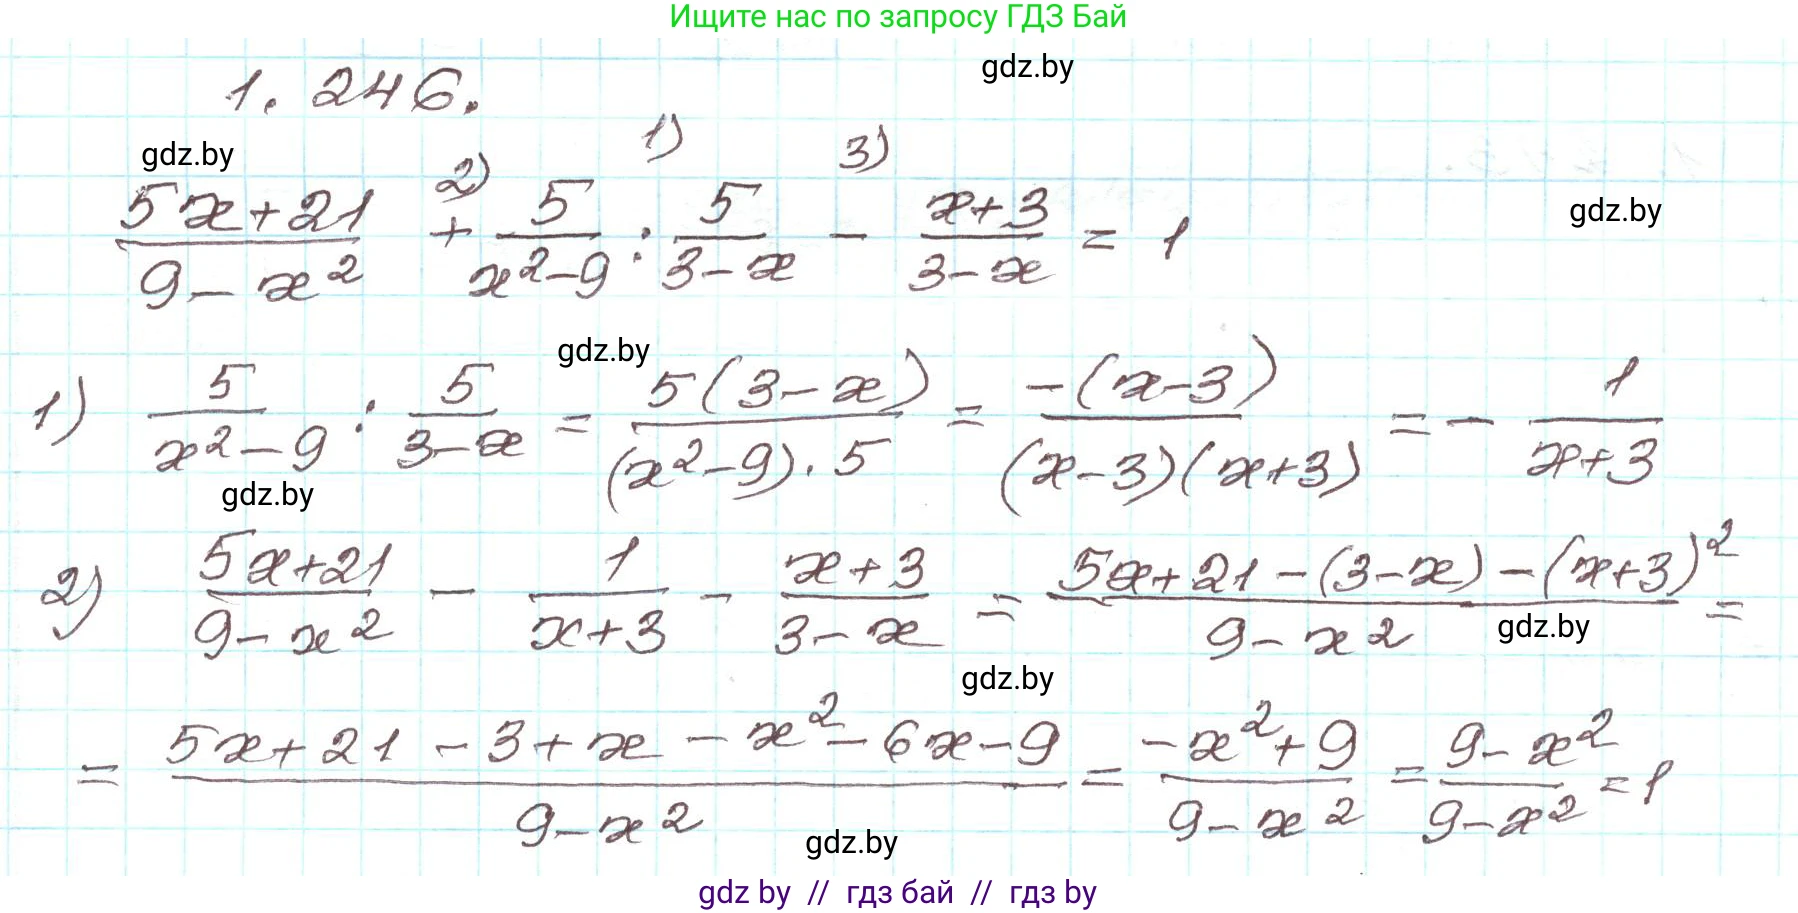 Ищите нас по запросу ГДЗ Бай
gdz.by
1.246.
gdz.by
1)
2)
3)
gdz.by
(5x+21)/(9-x²) + 5/(x²-9) : 5/(3-x) - (x+3)/(3-x) = 1
gdz.by
1) 5/(x²-9) : 5/(3-x) = 5(3-x)/((x²-9)·5) = -(x-3)/((x-3)(x+3)) = - 1/(x+3)
gdz.by
2) (5x+21)/(9-x²) - 1/(x+3) - (x+3)/(3-x) = (5x+21-(3-x)-(x+3)²)/(9-x²) =
gdz.by
gdz.by
= (5x+21-3+x-x²-6x-9)/(9-x²) = (-x²+9)/(9-x²) = (9-x²)/(9-x²) = 1
gdz.by
gdz by // гдз бай // гдз by